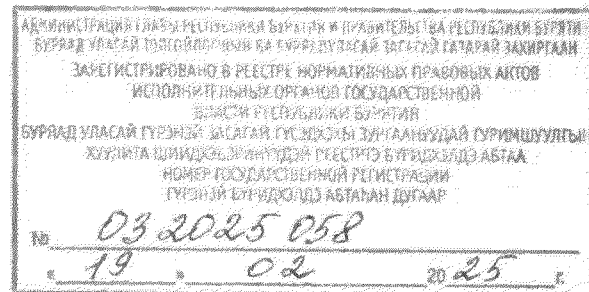 АДМИНИСТРАЦИЯ ГЛАВЫ РЕСПУБЛИКИ БУРЯТИЯ И ПРАВИТЕЛЬСТВА РЕСПУБЛИКИ БУРЯТИ
БУРЯАД УЛАСАЙ ТОЛГОЙЛОГШЫН БА БУРЯАД УЛАСАЙ ЗАСАГАЙ ГАЗАРАЙ ЗАХИРГААН
ЗАРЕГИСТРИРОВАНО В РЕЕСТРЕ НОРМАТИВНЫХ ПРАВОВЫХ АКТОВ
ИСПОЛНИТЕЛЬНЫХ ОРГАНОВ ГОСУДАРСТВЕННОЙ
ВЛАСТИ РЕСПУБЛИКИ БУРЯТИЯ
БУРЯАД УЛАСАЙ ГҮРЭНЭЙ ЗАСАГАЙ ГҮЙСЭДХЭХЫ ЗУРГААНУУДАЙ ГУРИМШУУЛГЫ
ХУУЛИТА ШИИДХЭБЭРИНҮҮДЭЙ РЕЕСТРТЭ БҮРИДХЭЛДЭ АБТАА
НОМЕР ГОСУДАРСТВЕННОЙ РЕГИСТРАЦИИ
ГҮРЭНЭЙ БҮРИДХЭЛДЭ АБТАҺАН ДУГААР
№ 03 2025 058
« 19 » 02 20 25 г.